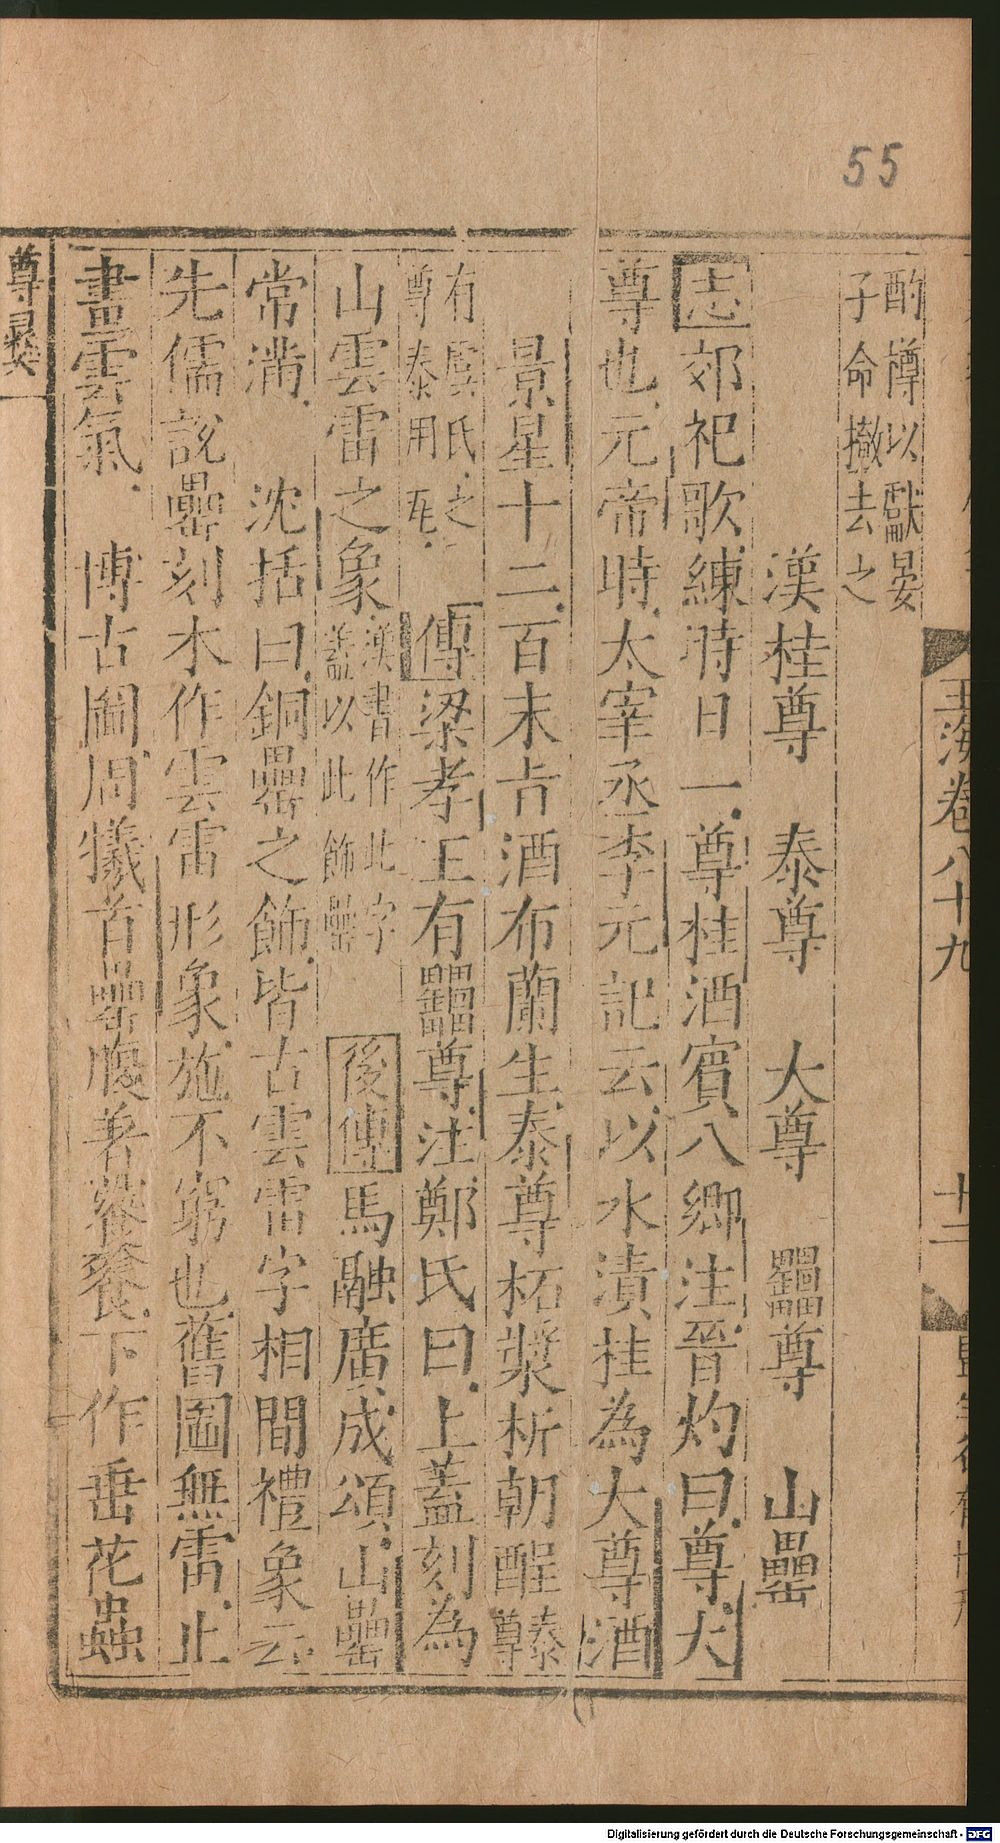 55
玉海卷八十九
十二
酌樽以獻晏
子命撤去之
漢桂尊 泰尊 大尊 罍尊 山罍
志郊祀歌練時日一尊桂酒賓八鄉注晉灼曰尊大
尊也元帝時太宰丞李元記云以水漬桂為大尊酒
景星十二百末旨酒布蘭生泰尊柘漿析朝酲泰尊
有虞氏之
尊泰用瓦 傳梁孝王有罍尊注鄭氏曰上蓋刻為
山雲雷之象漢書作此字蓋以此飾罍 後傳馬融廣成頌山罍
常滿 沈括曰銅罍之飾皆古雲雷字相間禮象云
先儒說罍刻木作雲雷形象施不窮也舊圖無雷止
畫雲氣 博古圖周犧首罍腹著饕餮下作垂花蟲
尊彝
Digitalisierung gefördert durch die Deutsche Forschungsgemeinschaft - DFG